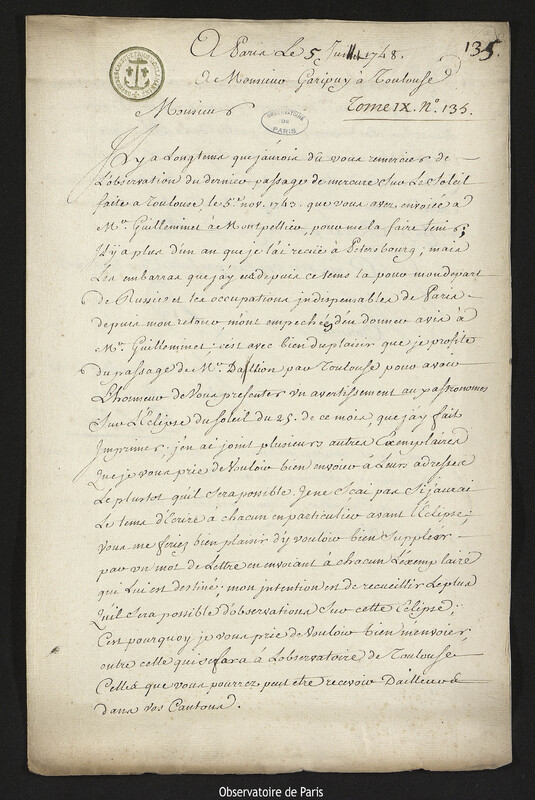 135.
A Paris Le 5 Juillet 1748.
A Monsieur Garipuy à Toulouse
Tome IX. N.º 135.
OBSERVATOIRE DE PARIS
Monsieur
Il y a Longtems que j'aurois dû vous remercier de
L'observation du dernier passage de mercure sur Le Soleil
faite a Toulouse, le 5.e nov. 1743. que vous avez envoiée a
M.r Guilleminet à Montpellier, pour me la faire tenir;
il y a plus d'un an que je l'ai reçûe à Petersbourg; mais
Les embarras que j'ay eu depuis ce tems la pour mon depart
de Russie et les occupations indispensables de Paris
depuis mon retour, m'ont empeché d'en donner avis à
M.r Guilleminet; c'est avec bien du plaisir que je profite
du passage de M.r par Toulouse pour avoir
L'honneur de Vous presenter un avertissement aux astronomes
Sur L'Eclipse du Soleil du 25. de ce mois, que j'ay fait
Imprimer; j'en ai joint plusieurs autres Exemplaires
Que je vous prie de Vouloir bien envoier à Leurs adresses
Le plustot qu'il sera possible. Je ne scai pas si j'aurai
Le tems d'Ecrire à chacun en particulier avant l'Eclipse;
Vous me feriez bien plaisir d'y vouloir bien Suppleer
par un mot de Lettre en envoiant à chacun L'exemplaire
qui Lui est destiné; mon intention est de recueillir Le plus
Qu'il Sera possible d'observations sur cette Eclipse;
C'est pourquoy je vous prie de Vouloir bien m'envoier,
outre celle qui se fera à L'observatoire de Toulouse
Celles que vous pourrez peut etre recevoir D'ailleurs
dans vos Cantons.
Observatoire de Paris